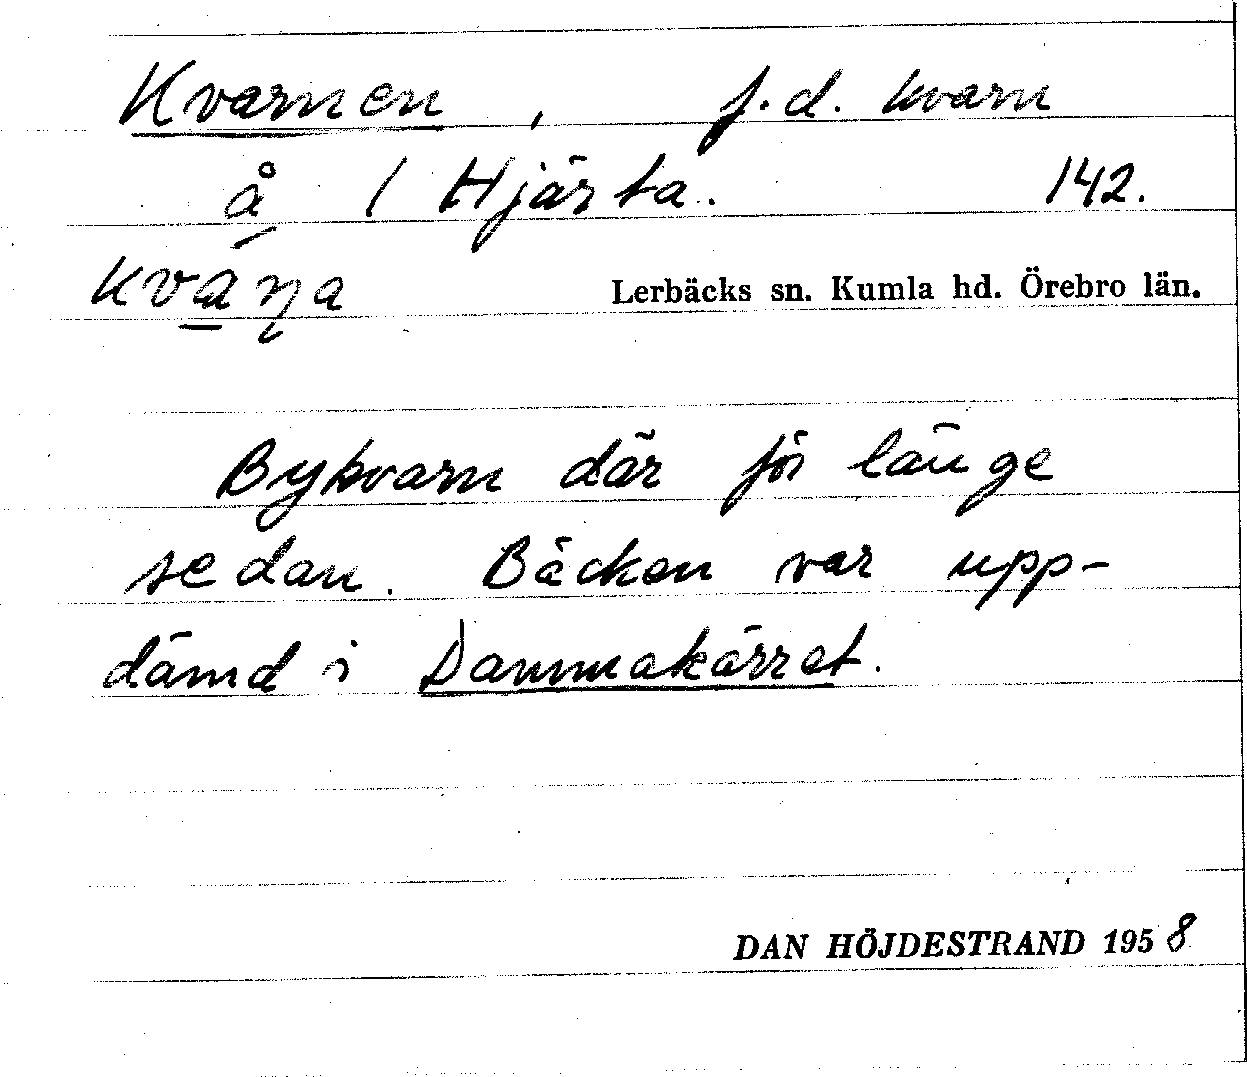 Kvarnen, f.d. kvarn
å 1 Hjärta. 142.
kvá̱ɳa Lerbäcks sn. Kumla hd. Örebro län.
Bykvarn där för länge
sedan. Bäcken var upp-
dämd i Dammakärret.
DAN HÖJDESTRAND 1958